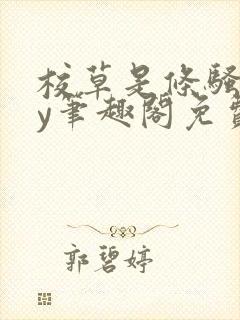 校草是条骚
y筆趣閣免費
郭碧婷